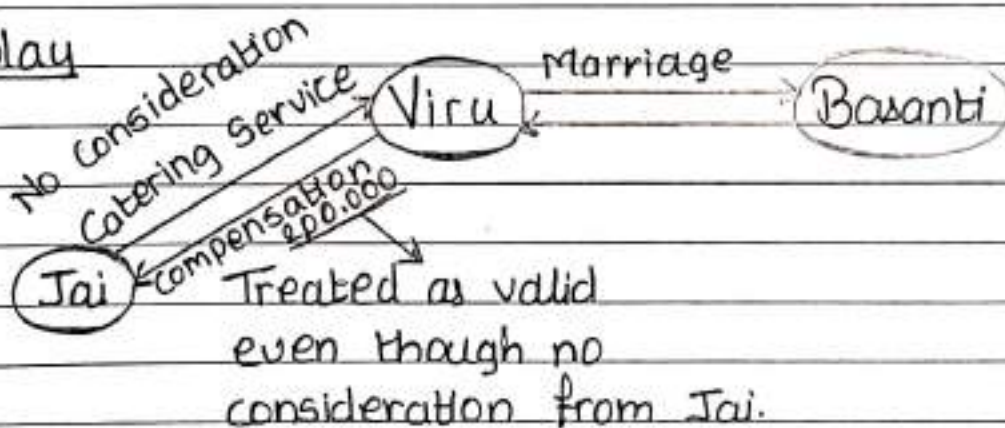 lay
No consideration
Catering Service
Viru
Marriage
Basanti
Compensation
200.000
Jai
Treated as valid
even though no
consideration from Jai.